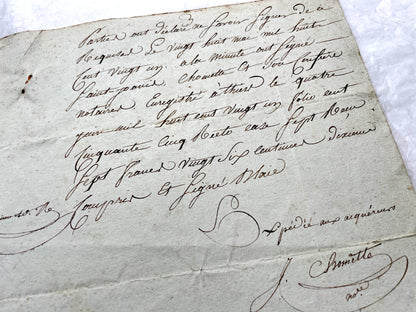 Parties ont déclaré ne savoir signer de ce
Requises Le vingt huit mai mil huit
Cent vingt un. a la minute ont signé
Chomette Et Son Confrère
notaires Enregistré à thiers le quatre
juin mil huit cent vingt un folio cent
Cinquante Cinq Recto case Sept Reçu
Sept francs vingt Six centimes dixieme
Compris Et Signé
Expédié aux acquéreurs
J. Chomette
nre